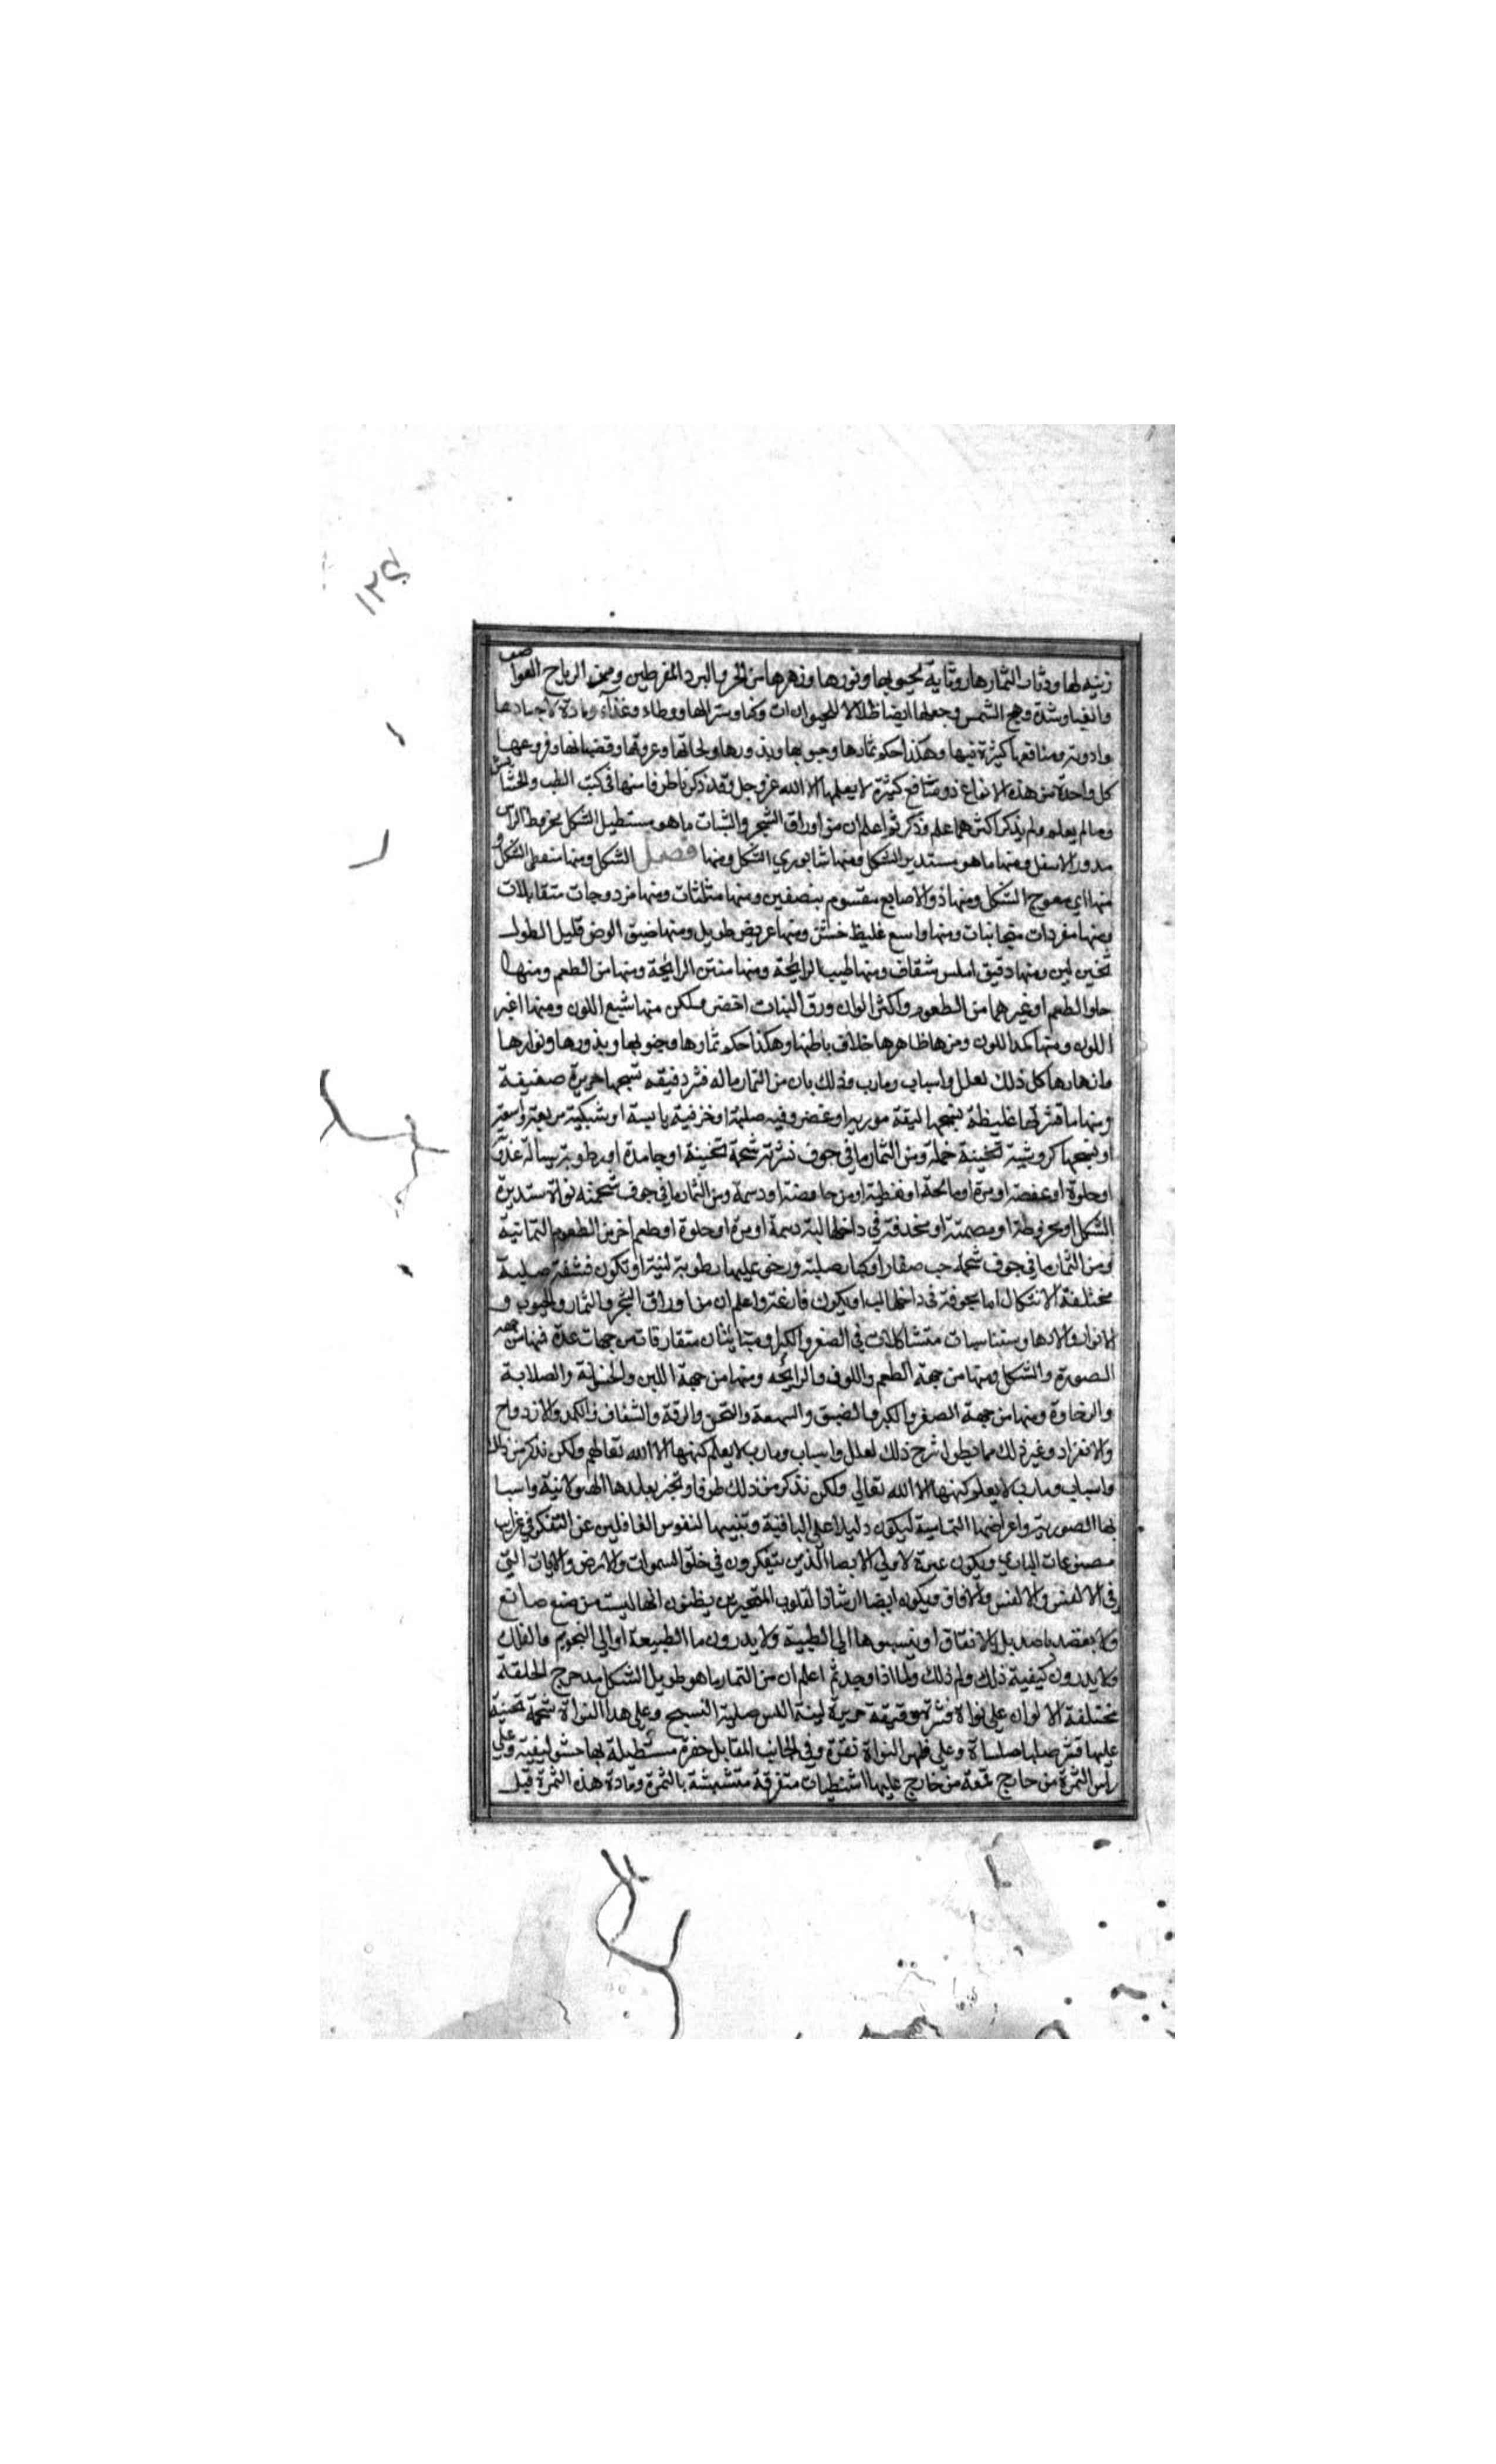 ١٢٤
زينه لها ودثار الثمارها ووقاية لحبوبها ونورها وزهرها من الحر والبرد المفرطين ومن الرياح العواصف
والغيا وشدة وهج الشمس وجعلها ايضا ظلالا للحيوانات وكنا وسترا لها ووطاء وغذاء ومادة لاجسادها
وادويه ومنافعها كثيرة فيها وهكذا حكم ثمارها وحبوبها وبذورها ولحائها وعروقها وقضبانها وفروعها
كل واحدة من هذه الانواع ذو منافع كثيرة لا يعلمها الا الله عز وجل وقد ذكر ناطرفا منها في كتب الطب والحشايش
ومالم يعلم ولم يذكر اكثر مما علم وذكر ثم اعلم ان من اوراق الشجر والنبات ما هو مستطيل الشكل مخروط الراس
مدور الاسفل ومنها ما هو مستدير الشكل ومنها شابوري الشكل ومنها فصيل الشكل ومنها الشكل و
منها معوج الشكل ومنها ذو الاصابع مقسوم بنصفين ومنها مثلثات ومنها مزدوجات متقابلات
ومنها مفردات متجانبات ومنها واسع غليظ خشن ومنها عريض طويل ومنها ضيق العرض قليل الطول
ثخين لين ومنها دقيق املس شفاف ومنها طيب الرايحة ومنها منتن الرايحة ومنها مر الطعم ومنها
حلو الطعم او غيرهما من الطعوم واكثر الوان ورق النبات اخضر ولكن منها شبع اللون ومنها اغبر
اللون ومنها كمد اللون ومنها ظاهرها خلاف باطنها وهكذا حكم ثمارها وحبوبها وبذورها ونوارها
وازهارها كل ذلك لعلل واسباب ومارب وذلك بان من الثمار ماله قشر دقيقه نسجها حريرة صفيقة
ومنها ما قشرتها غليظة نسجها ليفة او غضروفيه صلبة او خزفية يابسة او شبكية مربعة واسعة
او نسجها كروشية ثخينة خملة ومن الثمار ما في جوف قشرته شحمة ثخينة او جامدة او رطوبة سيالة عذبة
او حلوة او عفصة او مرة او مالحة او من حامضة او دسمة ومن الثمار ما في جوف شحمته نواة مستديرة
الشكل او مخروطة او مصمتة او في داخلها لبة دسمة او مرة او حلوة او طعم اخر من الطعوم الثمانية
ومن الثمار ما في جوف شحمه حب صغار او كبار صلبة ورخو عليها رطوبة لزجة او تكون قشفة صلبة
مختلفة الاشكال اما مجوفة في داخلها لب او يكون فارغة واعلم ان من اوراق الشجر والثمار والحبوب و
الانوار والازهار ومتناسبات متشاكلات في الصغر والكبر ومتباينات متفارقات من جهات عدة فمنها من جهه
الصورة والشكل ومنها من جهة الطعم واللون والرايحه ومنها من جهة اللين والخشونة والصلابة
والرخاوة ومنها من جهة الصغر والكبر والضيق والسعة والثخن والرقة والشفاف والكمد والازدواج
والانفراد وغير ذلك مما يطول شرح ذلك لعلل واسباب ومارب لا يعلم كنهها الا الله تعالى ولكن نذكر من ذلك
واسباب ومارب لا يعلم كنهها الا الله تعالى ولكن نذكر من ذلك طرفا ونخبر بعللها الهيولانية واسبا
بها الصورية واغراضها التمامية ليكون دليلا على الباقية وتنبيها لنفوس الغافلين عن التفكر في غرايب
مصنوعات الباري ويكون عبرة لاولي الابصا الذين يتفكرون في خلق السموات والارض والايات التي
في الانفس والافاق ويكون ايضا ارشادا لقلوب المتحيرين يظنون انها ليست من صنع صانع
ولا بقصد قاصد بل الاتفاق او ينسبوها الى الطبيعة ولا يدرون ما الطبيعة او الى النجوم والفلك
ولا يدرون كيفية ذلك ولم ذلك ولماذا وجد ثم اعلم ان من الثمار ما هو طويل الشكل مدحرج الخلقة
مختلفة الالوان على نواة قشرته رقيقة حريرة لينة اللمس صلبة النسيج وعلى هذا النواة شحمة ثخينة
عليها قشر صلبا ملساة وعلى ظهر النواة نقرة وفي الجانب المقابل حفرة مستطيلة بها حشو ليفية وعلى
رأس الثمرة من خارج قمعة من خارج عليها شظيات متفرقة متشبثة بالثمرة ومادة هذه الثمرة قبل